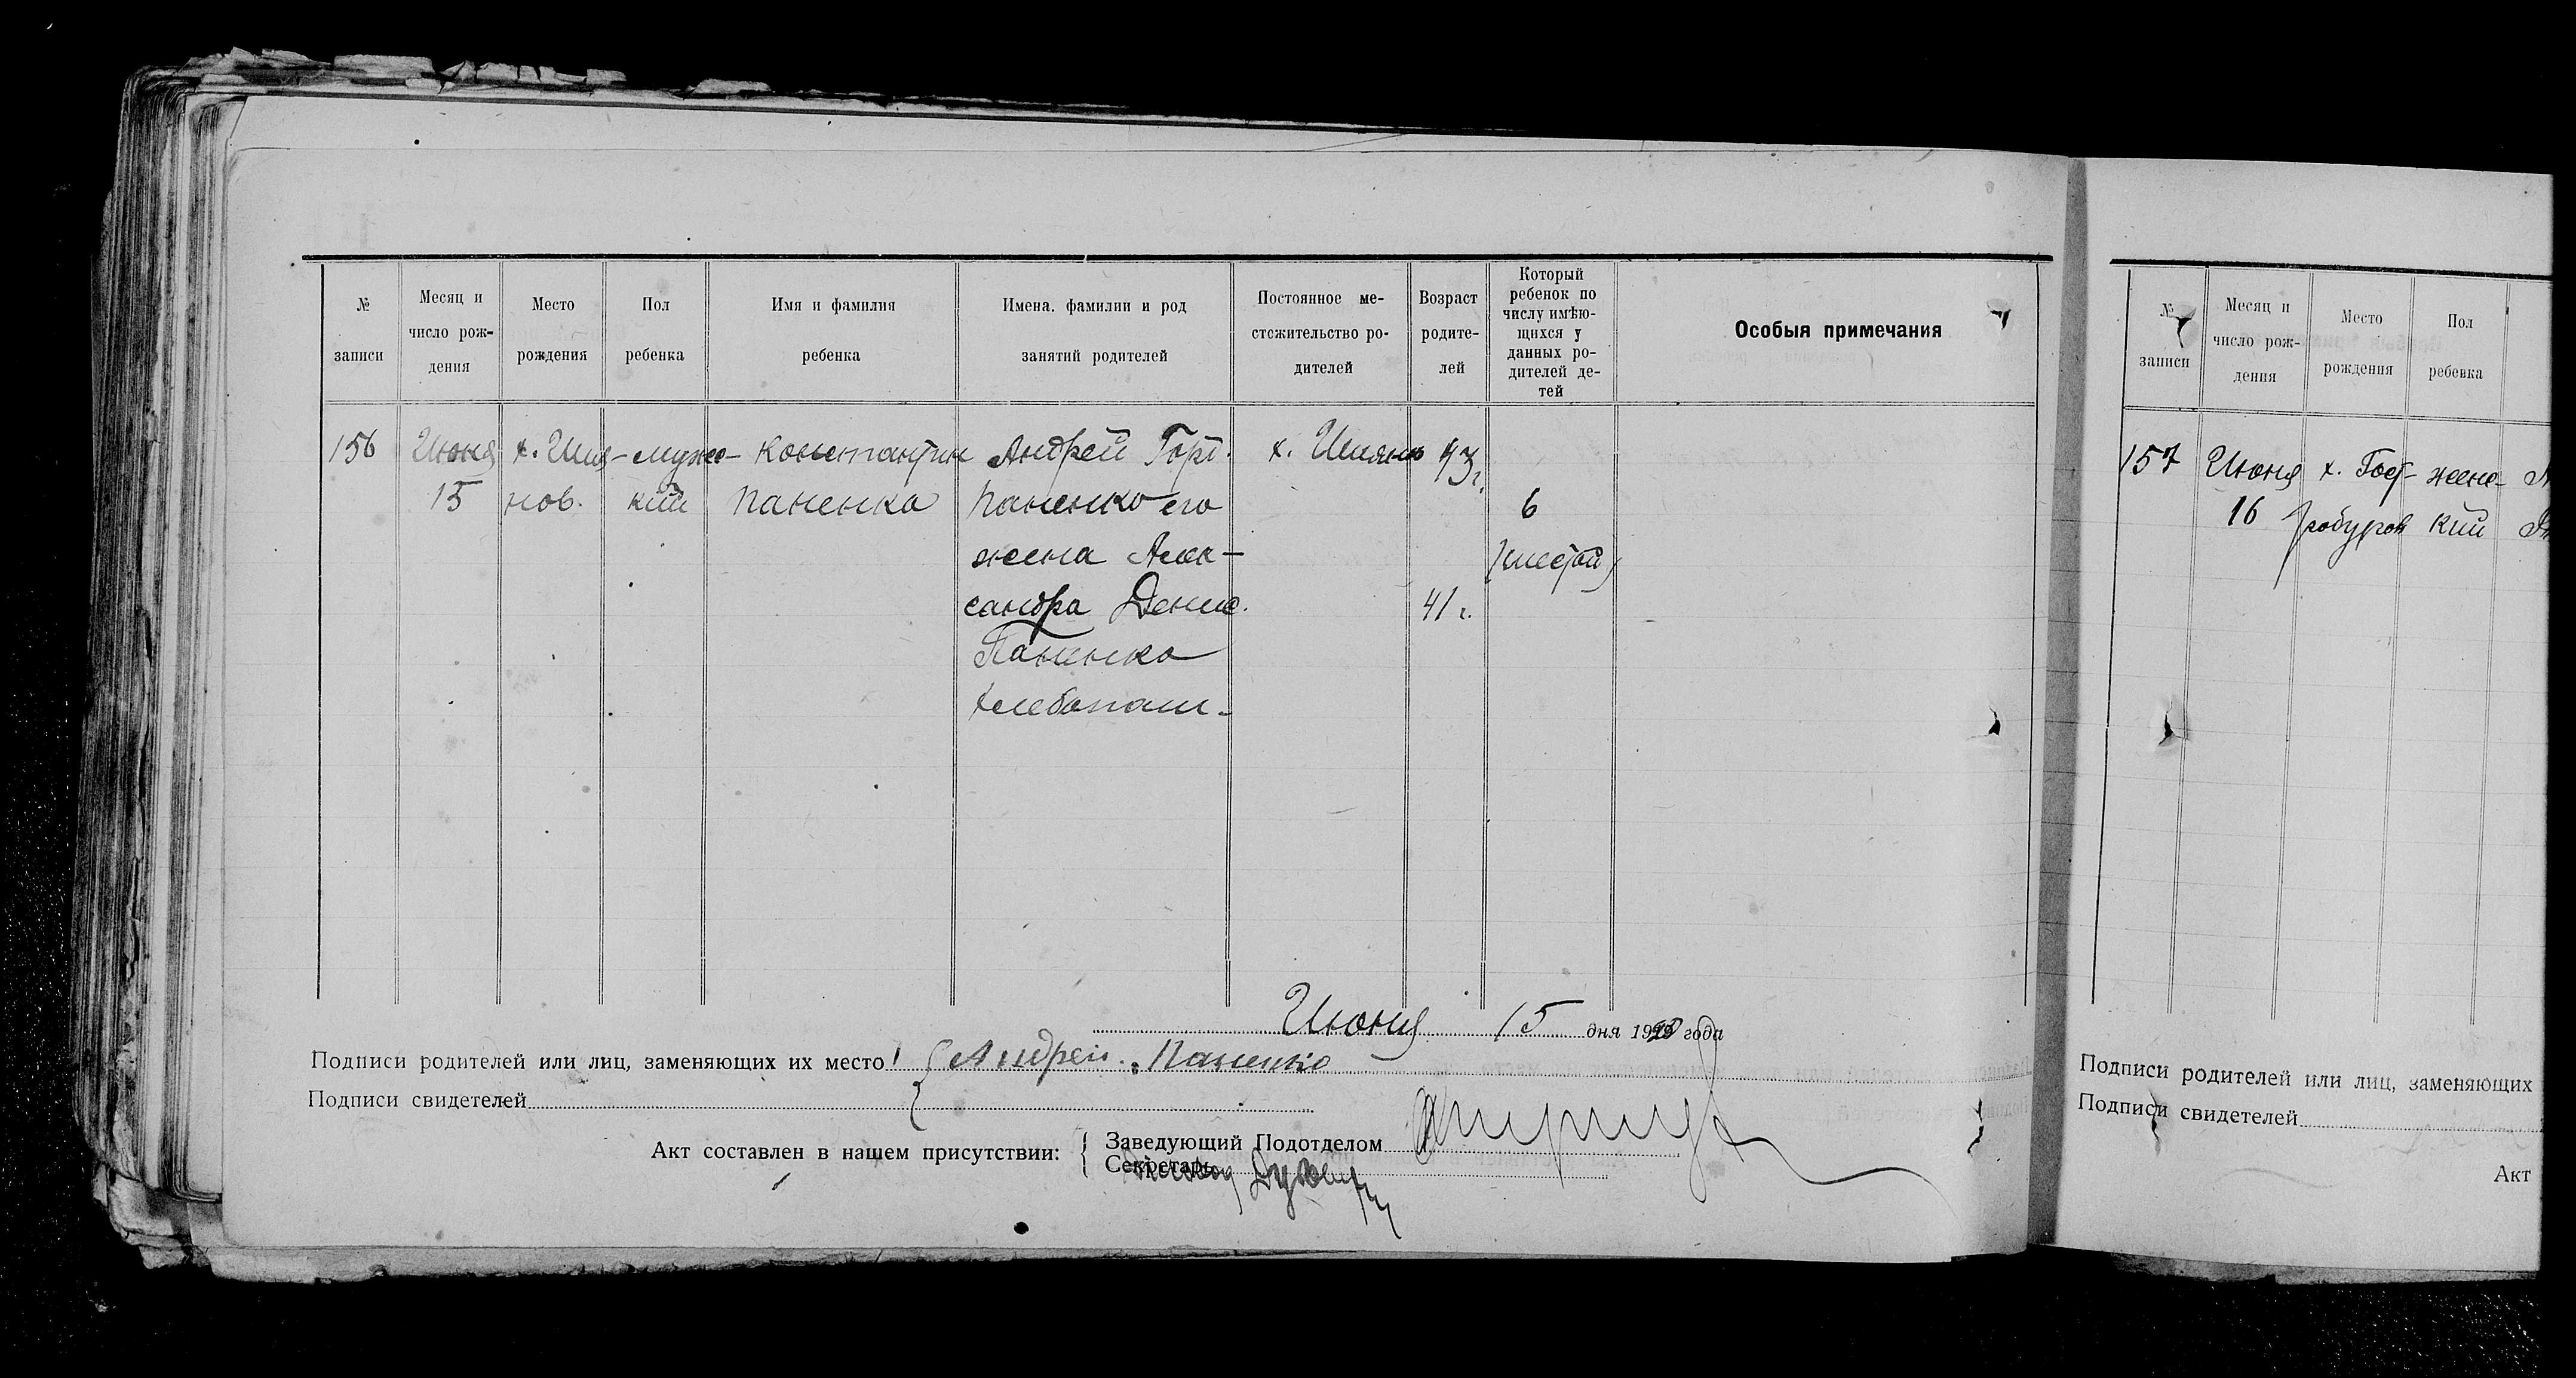 № записи
Месяц и число рождения
Место рождения
Пол ребенка
Имя и фамилия ребенка
Имена, фамилии и род занятий родителей
Постоянное местожительство родителей
Возраст родителей
Который ребенок по числу имѣющихся у данных родителей детей
Особыя примечания
156
Июня
15
х. Шия-
нов.
мужс-
кий
Константин
Паненко
Андрей Гори.
Паненко его
жена Алек-
сандра Денис.
Паненко
хлебопаш.
х. Шиянов
43 г.
41 г.
6
(шестой)
Июня 15 дня 1920 года
Подписи родителей или лиц, заменяющих их место Андрей Паненко
Подписи свидетелей
Акт составлен в нашем присутствии:
Заведующий Подотделом
Секретарь
№ записи
Месяц и число рождения
Место рождения
Пол ребенка
157
Июня
16
х. Гос-
кий
жене-
Подписи родителей или лиц, заменяющих
Подписи свидетелей
Акт